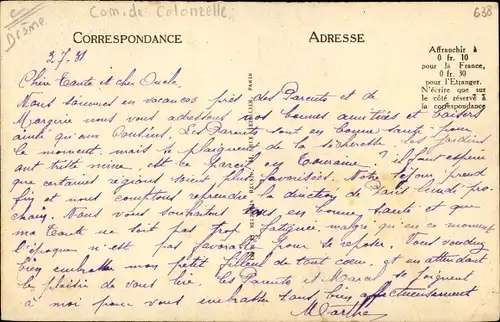 Drôme
Com. de Colonzelle
638
CORRESPONDANCE
ADRESSE
Affranchir à
0 fr. 10
pour la France,
0 fr. 30
pour l'Etranger.
N'écrire que sur
le côté réservé à
la correspondance
3.7.31
Chère Tante et cher Oncle.
Nous sommes en vacances près des Parents et de
Margirie nous vous adressons nos bonnes amitiés et baisers
ainsi qu'aux Cousins. Les Parents sont en bonne santé pour
le moment, mais se plaignent de la sécheresse les jardins
ont triste mine, est-ce pareil en Touraine ? il faut espérer
que certaines régions soient plus favorisées. Notre séjour prend
fin et nous comptons reprendre la direction de Paris lundi pro-
chain. Nous vous souhaitons en bonne santé et que
ma Tante ne soit pas trop fatiguée, malgré qu'en ce moment
l'époque n'est pas favorable pour se reposer. Vous voudrez
bien embrasser mon petit filleul de tout cœur, et en attendant
le plaisir de vous lire, les Parents et Marcel se joignent
à moi pour vous embrasser tous bien affectueusement
Marthe